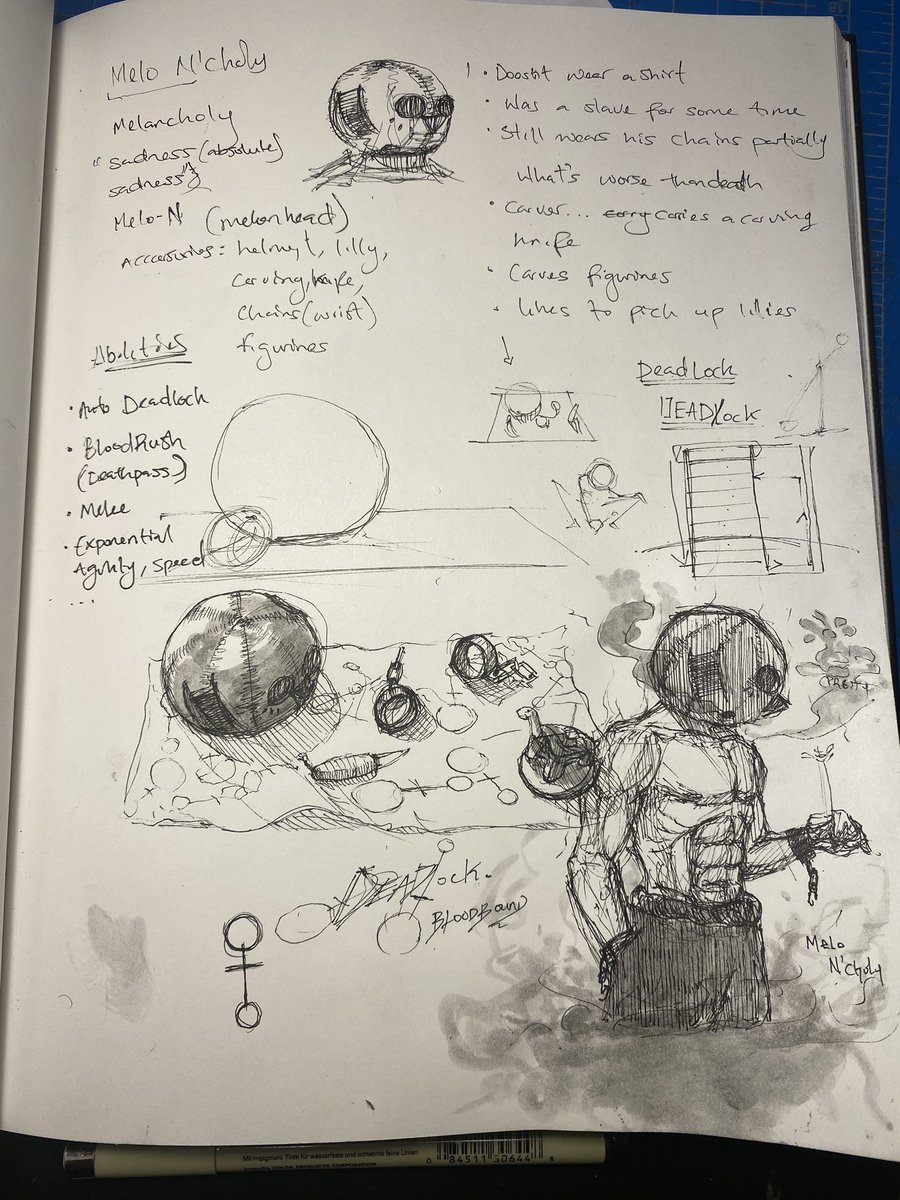 Melo N'choly
Melancholy
"sadness (absolute)
sadness"
Melo-N (melonhead)
Acccessories: helmet, lilly,
carving knife,
chains (wrist)
figurines
Abilities
• Auto Deadlock
• BloodRush
(Deathpass)
• Melee
• Exponential
Agility, speed
...
• Doesnt wear a shirt
• Was a slave for some time
• Still wears his chains partially
What's worse than death
• Carver... carry carries a carving
knife
• Carves figurines
• likes to pick up lilies
DeadLock
DEADLOCK
DEADLock.
BLOODBOUND
Melo
N'choly
Mit pigmentierter Tinte für wasserfeste und lichtechte feine Linien
SAKURA COLOR PRODUCTS CORPORATION
0 84511 30644 8